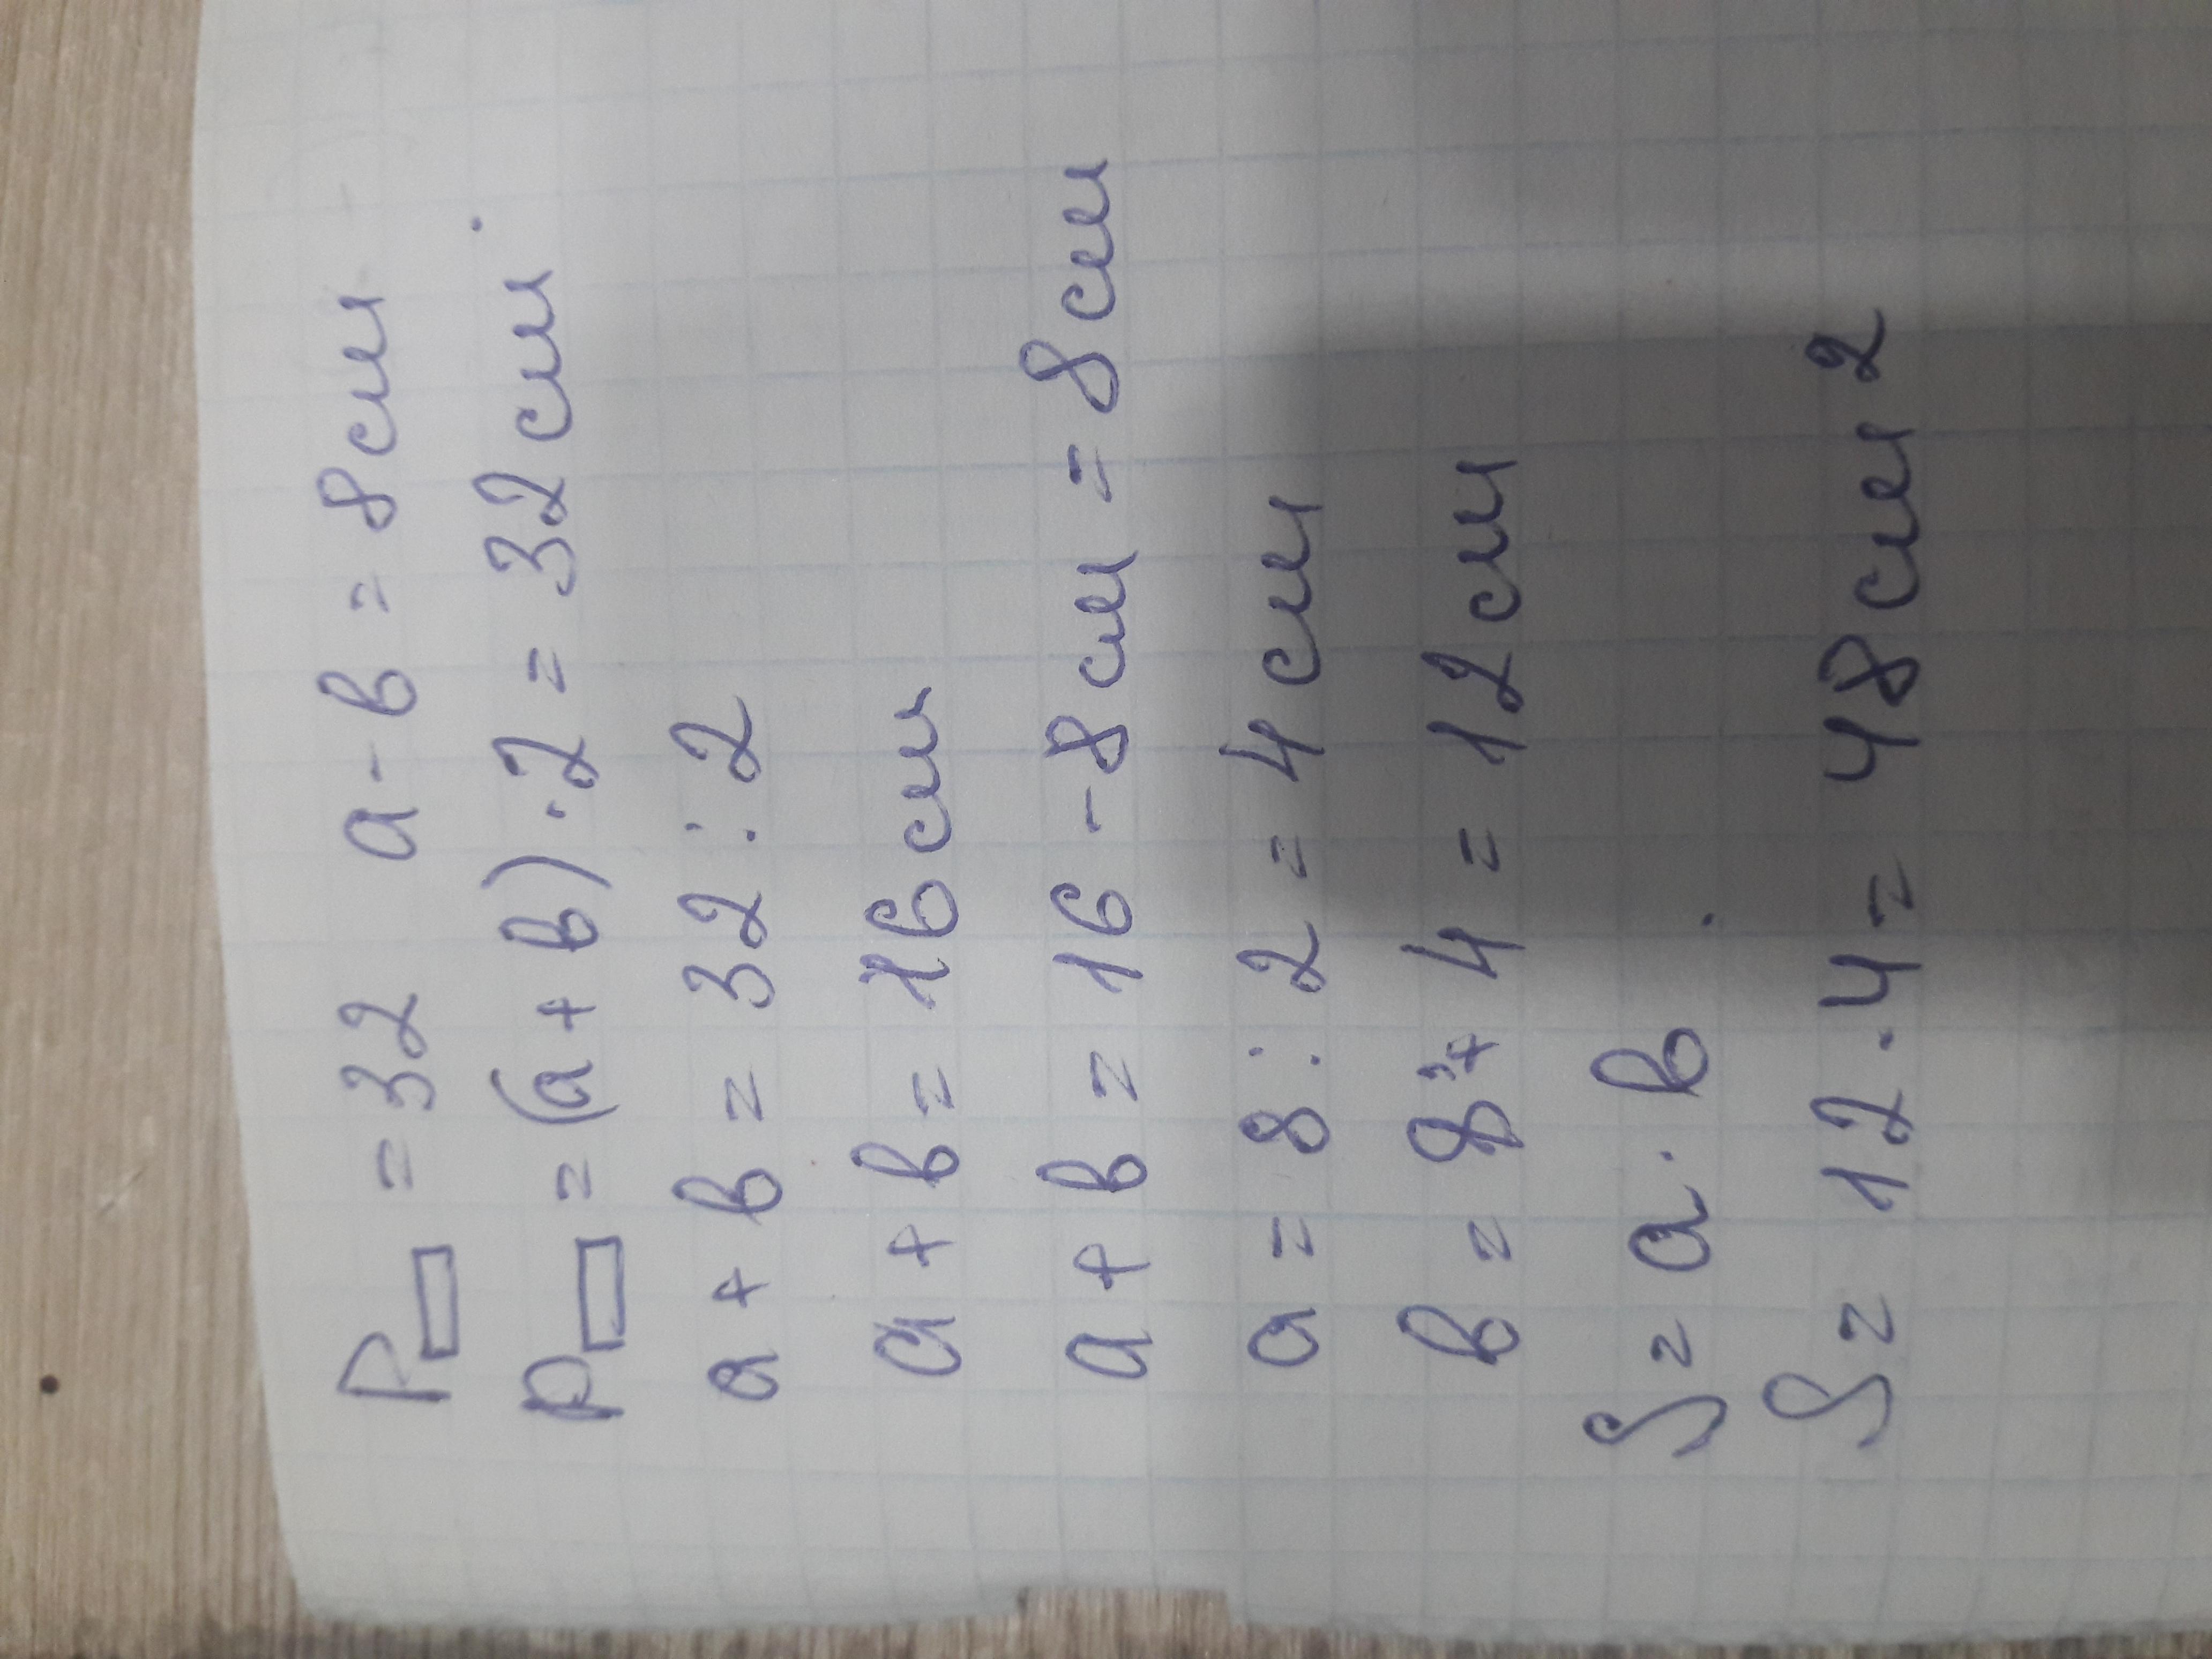 P▭ = 32 a - в = 8 см
P▭ = (a + в) · 2 = 32 см
a + в = 32 : 2
a + в = 16 см
a + в = 16 - 8 см = 8 см
a = 8 : 2 = 4 см
в = 8 + 4 = 12 см
S = a · в
S = 12 · 4 = 48 см 2